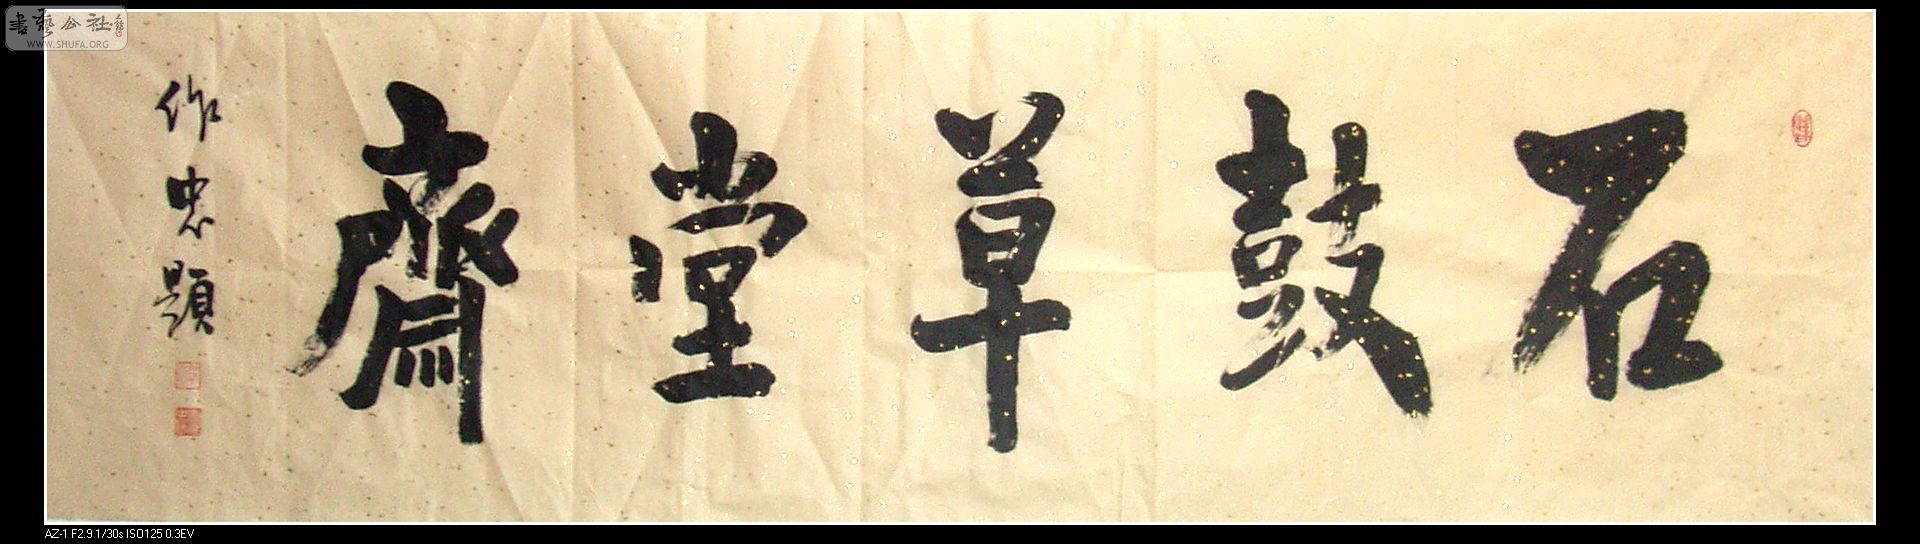 石鼓草堂齋
作忠題
書藝公社
WWW.SHUFA.ORG
AZ-1 F2.9 1/30s ISO125 0.3EV